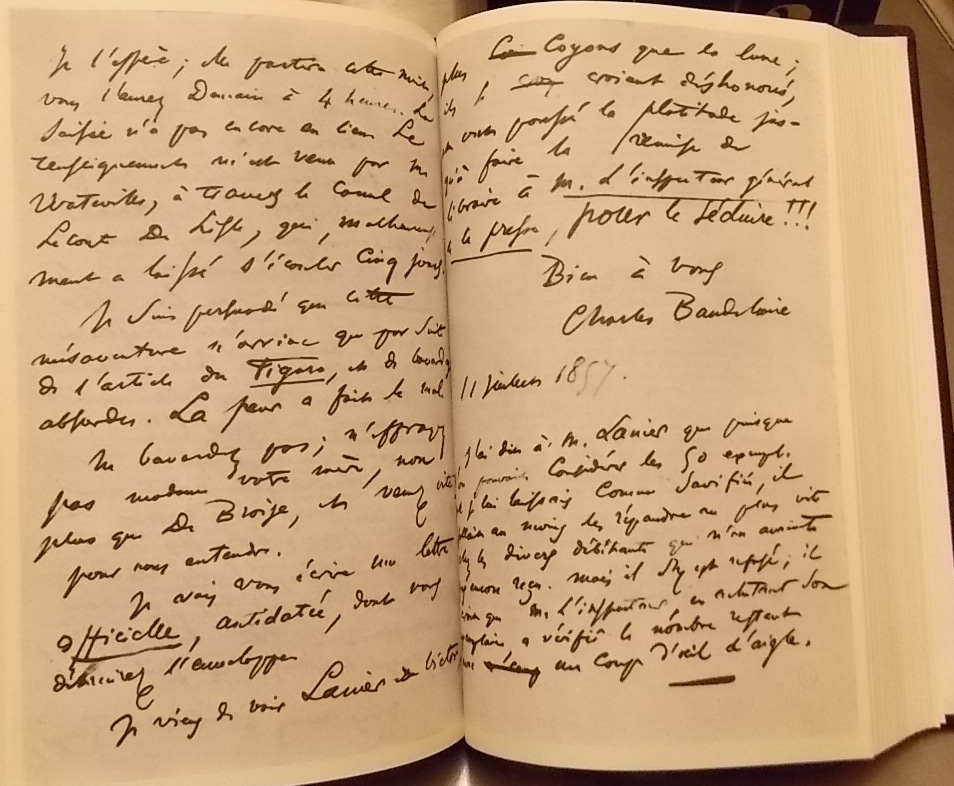 je l'espère ; elle partira cette nuit,
vous l'aurez Demain à 4 heures. La
Saisie n'a pas encore eu lieu. Le
renseignement m'est venu par M.
Watteville, à travers le Canal de
Leconte De Lisle, qui, malheureuse-
ment a laissé s'écouler Cinq jours.
Je Suis persuadé que cette
mésaventure n'arrive que par Suite
de l'article du Figaro, et de bavardages
absurdes. La peur a fait le mal.
Ne bavardez pas ; n'effrayez
pas madame votre mère, non
plus que De Broise, et venez vite
pour nous entendre.
Je vais vous écrire une lettre
officielle, antidatée, dont vous
détruirez l'enveloppe.
Je viens de voir Lanier et Victor,
Coyons que la lune ;
plus
ils se croient déshonorés,
et ont poussé la platitude jus-
qu'à faire la remise de
libraire à M. L'inspecteur général
de la presse, pour le Séduire !!!
Bien à vous
Charles Baudelaire
11 juillet 1857.
J'ai dit à M. Lanier que puisque
nous pouvions Considérer les 50 exempl.
que je lui laissais Comme Sacrifiés, il
fallait au moins les répandre au plus vite
chez les divers débitants qui n'en avaient
pas encore reçu. Mais il S'y est refusé ; il
que M. L'inspecteur, en achetant Son
exemplaire a vérifié le nombre restant
avec un Coup D'œil d'aigle.